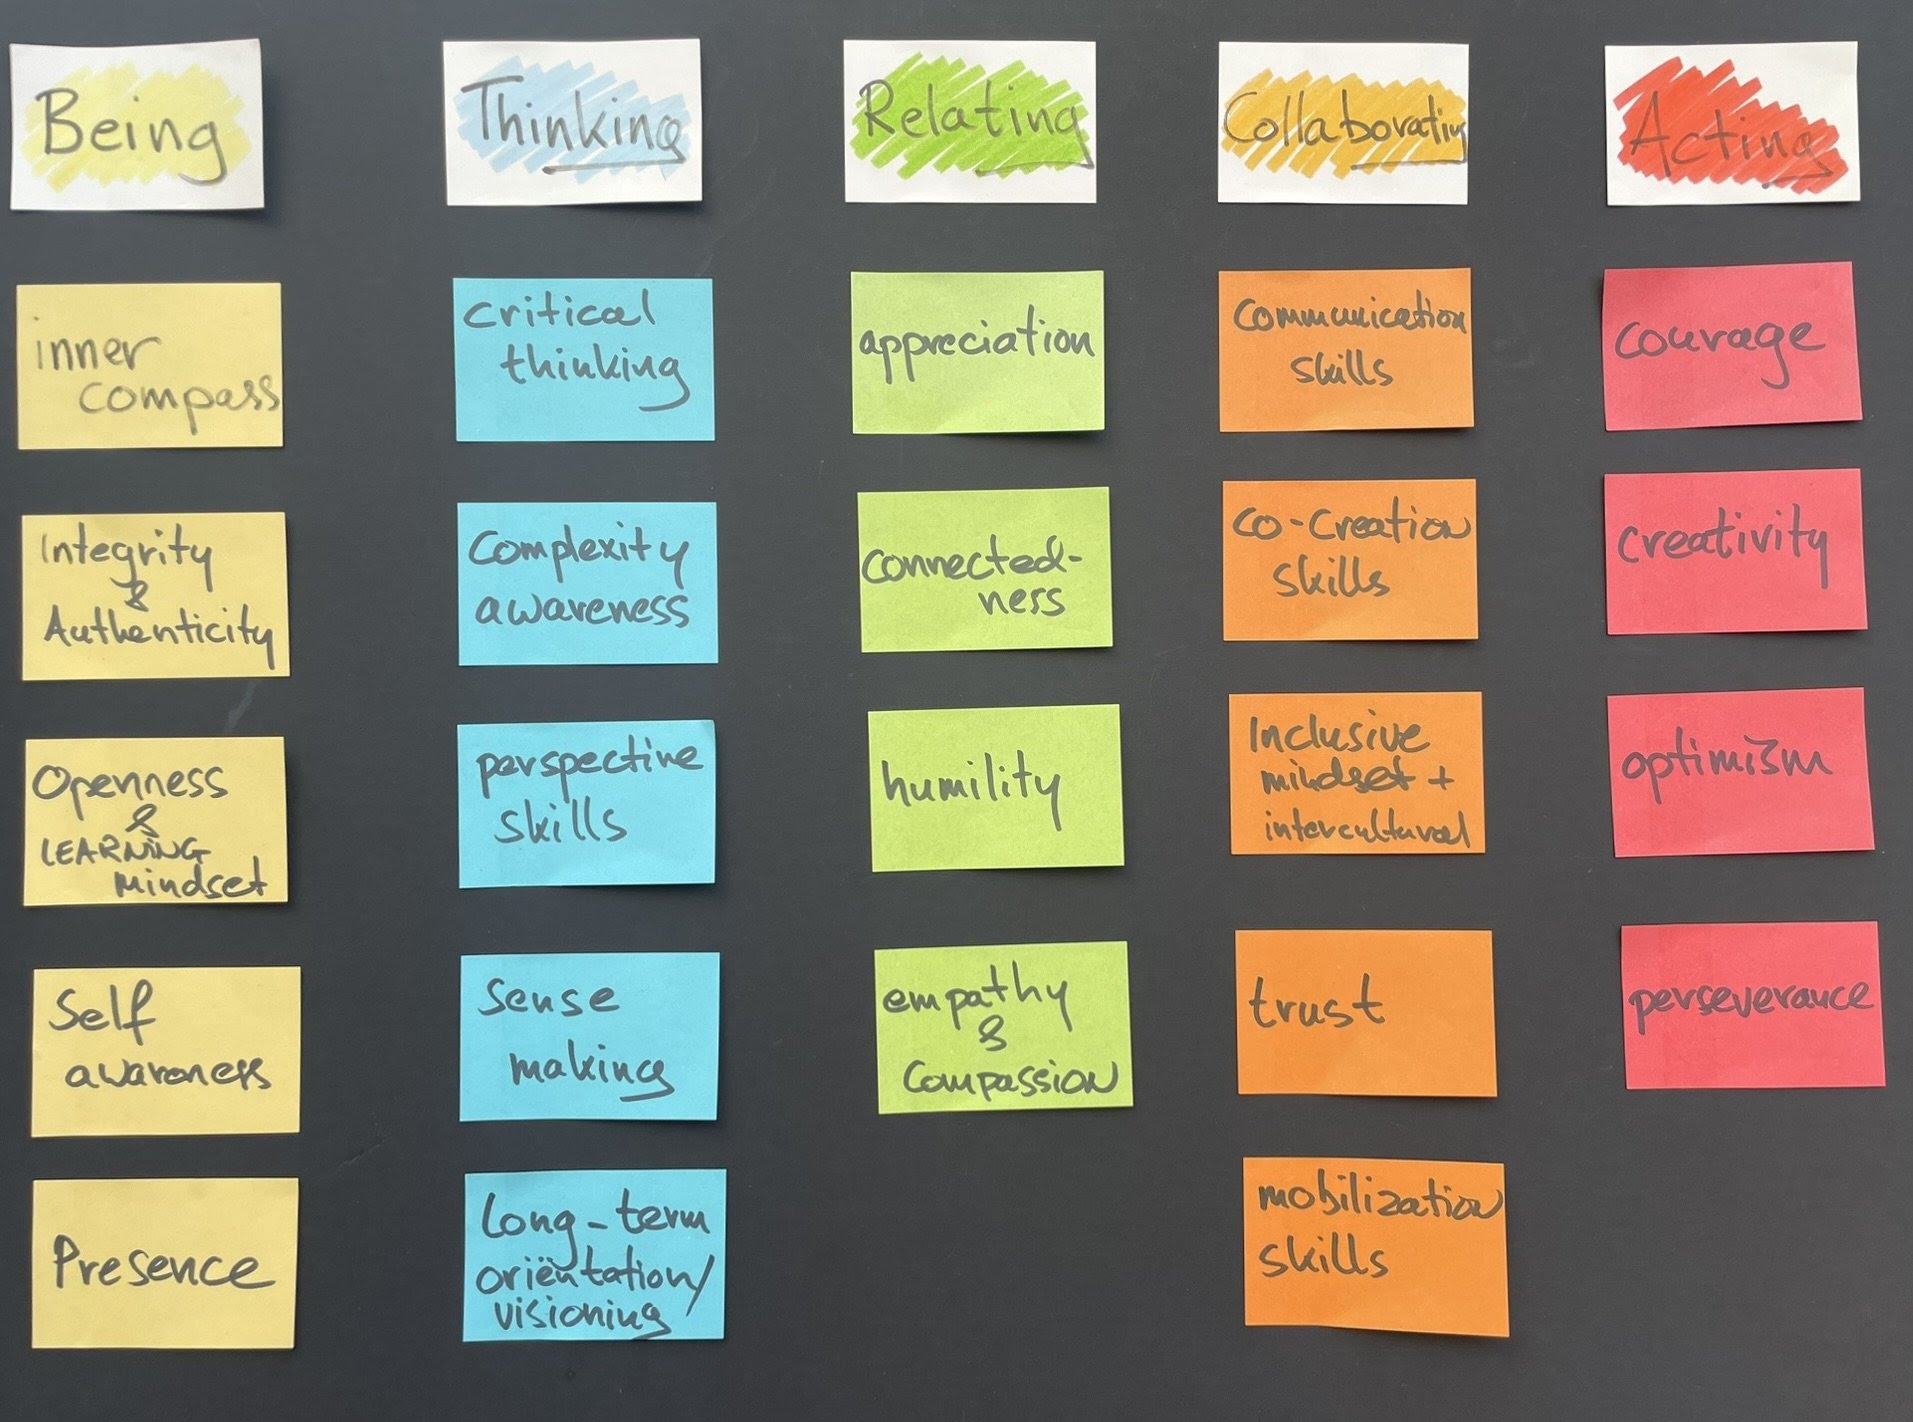 Being
inner
compass
Integrity
&
Authenticity
Openness
&
LEARNING
mindset
Self
awareness
Presence
Thinking
critical
thinking
Complexity
awareness
perspective
skills
Sense
making
Long-term
oriëntation/
visioning
Relating
appreciation
Connected-
ness
humility
empathy
&
Compassion
Collaborating
Communication
skills
Co-Creation
skills
Inclusive
mindset +
intercultural
trust
mobilization
skills
Acting
courage
creativity
optimism
perseverance